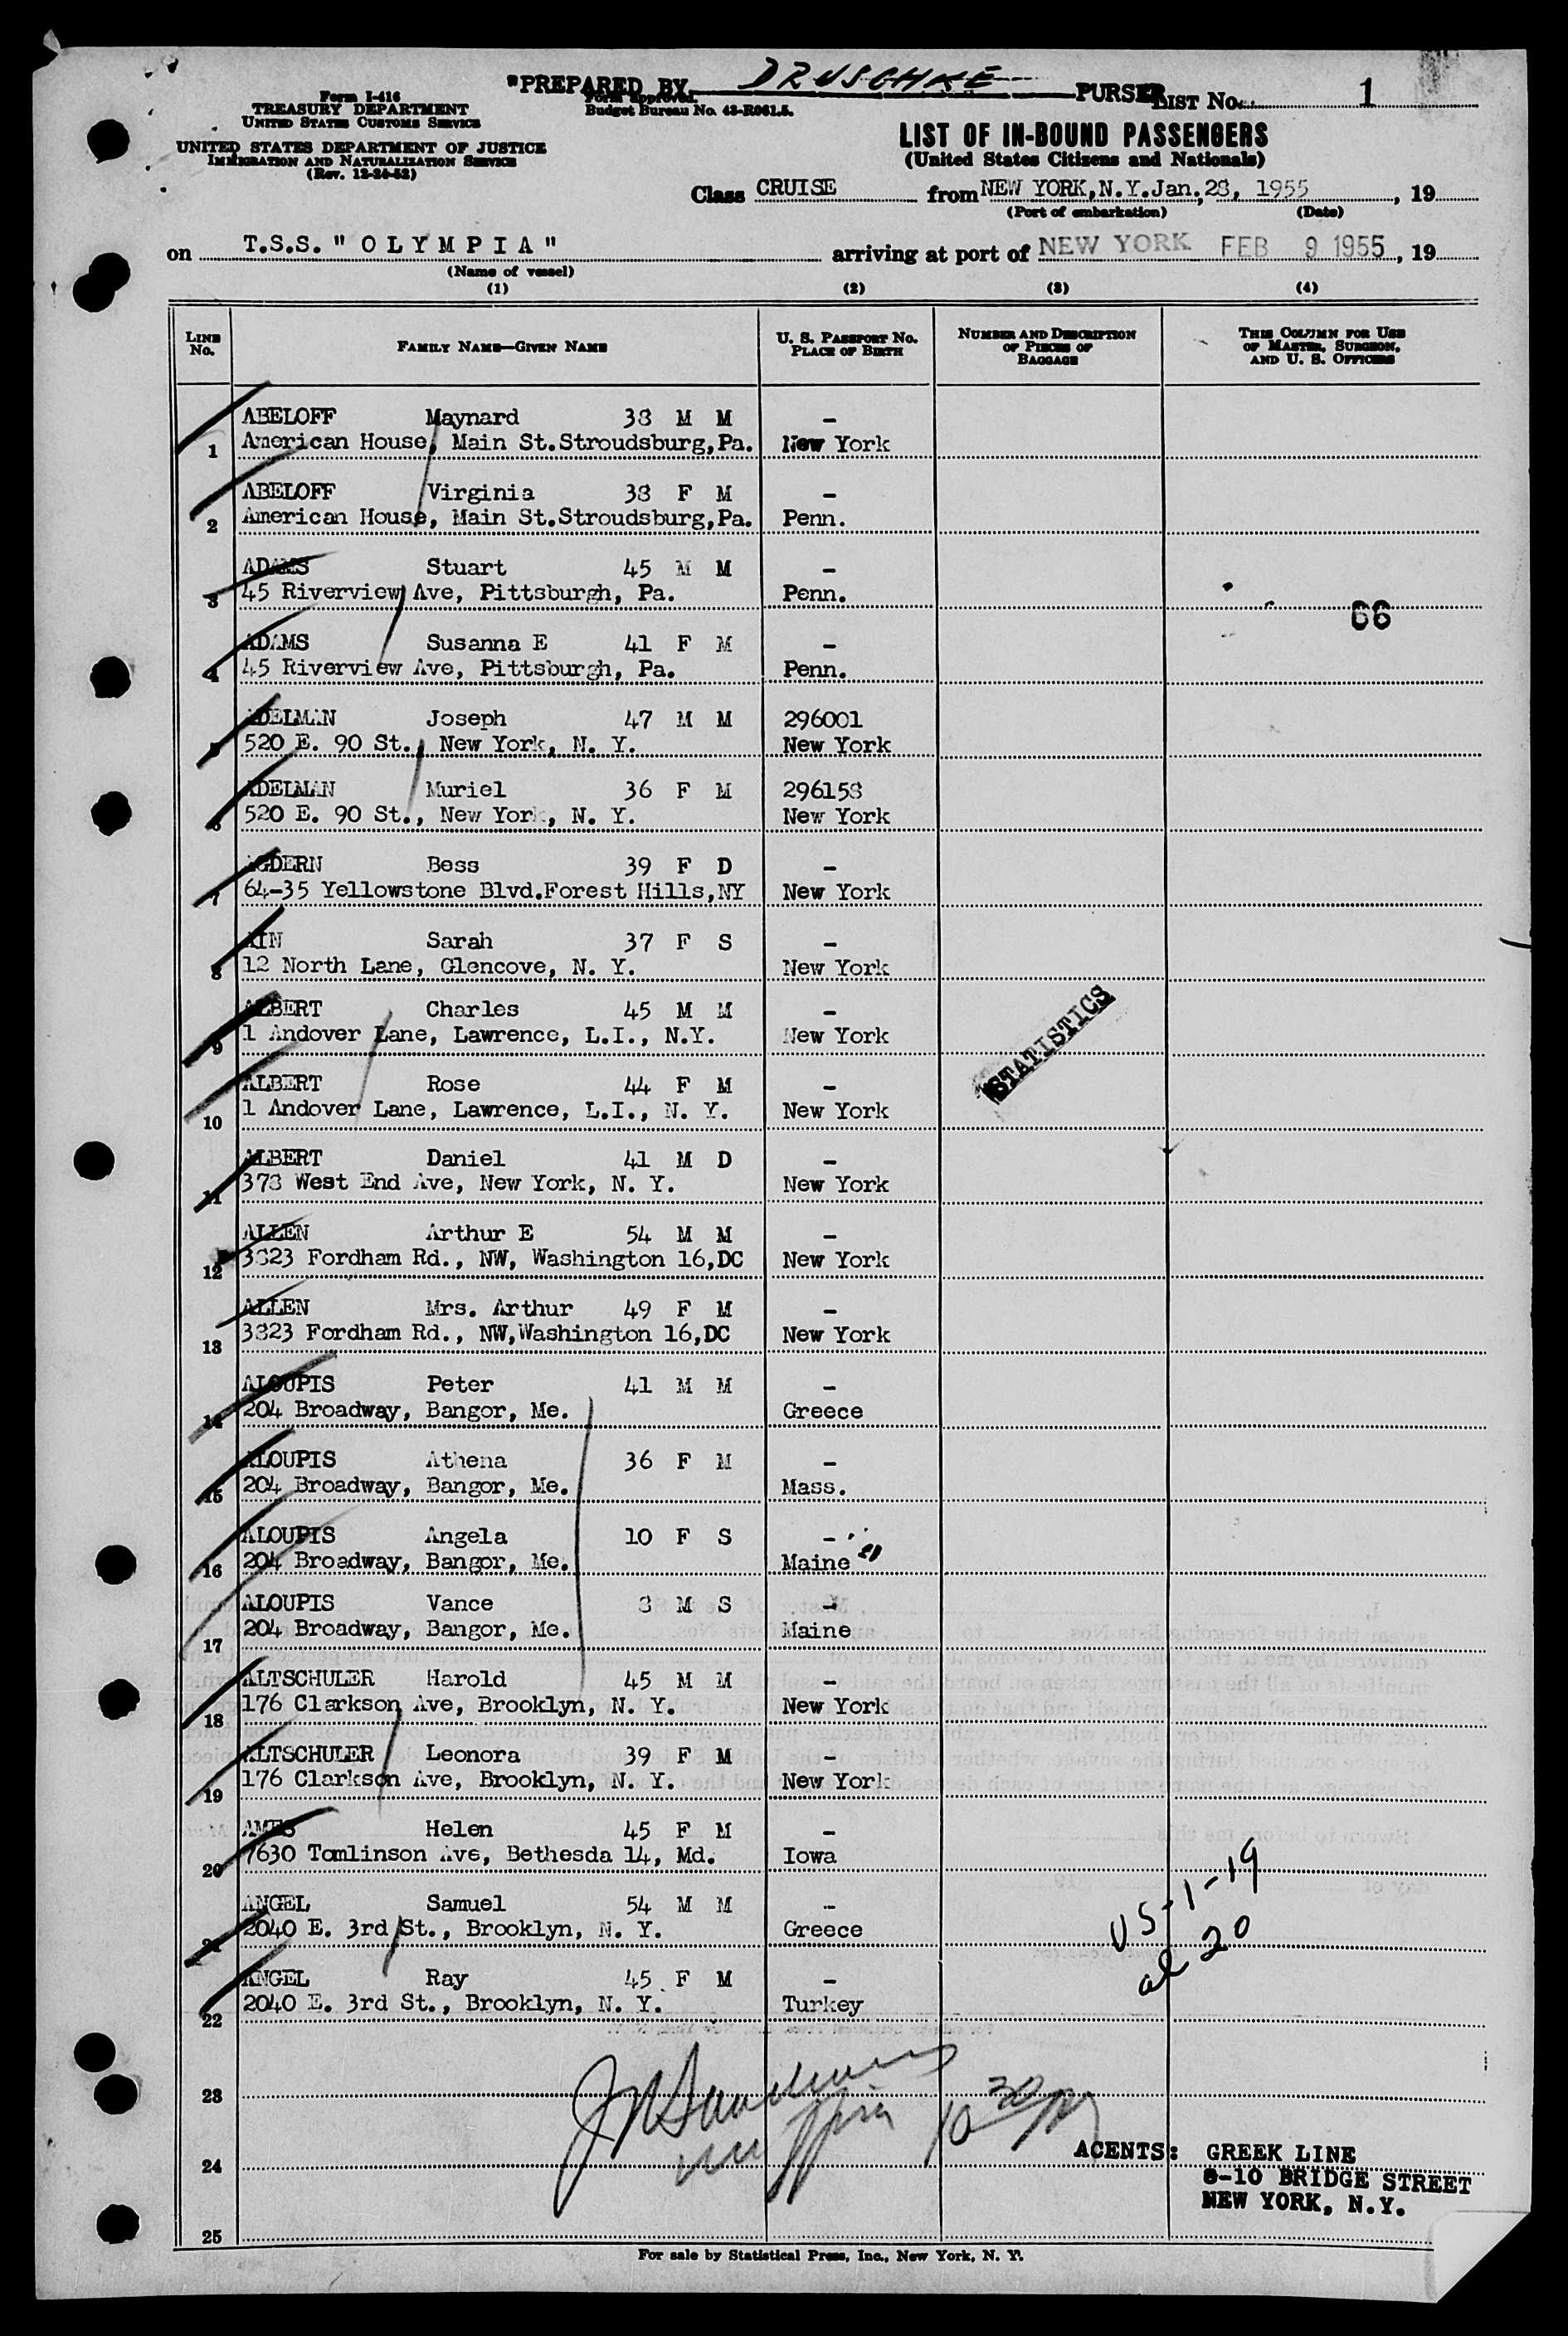 "PREPARED BY DRUSCHKE PURSER
Form I-416
TREASURY DEPARTMENT
UNITED STATES CUSTOMS SERVICE
Form approved.
Budget Bureau No. 43-R061.5.
LIST No. 1
UNITED STATES DEPARTMENT OF JUSTICE
IMMIGRATION AND NATURALIZATION SERVICE
(Rev. 12-24-52)
LIST OF IN-BOUND PASSENGERS
(United States Citizens and Nationals)
Class CRUISE from NEW YORK, N.Y. Jan. 28, 1955, 19
(Port of embarkation) (Date)
on T.S.S. "OLYMPIA" arriving at port of NEW YORK FEB 9 1955, 19
(Name of vessel)
(1) (2) (3) (4)
LINE No. FAMILY NAME—GIVEN NAME U. S. PASSPORT NO. PLACE OF BIRTH NUMBER AND DESCRIPTION OF PIECES OF BAGGAGE THIS COLUMN FOR USE OF MASTER, SURGEON, AND U. S. OFFICERS
ABELOFF Maynard 38 M M -
1 American House, Main St.Stroudsburg,Pa. New York
ABELOFF Virginia 38 F M -
2 American House, Main St.Stroudsburg,Pa. Penn.
ADAMS Stuart 45 M M -
3 45 Riverview Ave, Pittsburgh, Pa. Penn.
66
ADAMS Susanna E 41 F M -
4 45 Riverview Ave, Pittsburgh, Pa. Penn.
ADELMAN Joseph 47 M M 296001
5 520 E. 90 St., New York, N. Y. New York
ADELMAN Muriel 36 F M 296158
6 520 E. 90 St., New York, N. Y. New York
AGDERN Bess 39 F D -
7 64-35 Yellowstone Blvd.Forest Hills,NY New York
AIN Sarah 37 F S -
8 12 North Lane, Glencove, N. Y. New York
ALBERT Charles 45 M M -
9 1 Andover Lane, Lawrence, L.I., N.Y. New York
STATISTICS
ALBERT Rose 44 F M -
10 1 Andover Lane, Lawrence, L.I., N. Y. New York
ALBERT Daniel 41 M D -
11 378 West End Ave, New York, N. Y. New York
ALLEN Arthur E 54 M M -
12 3823 Fordham Rd., NW, Washington 16,DC New York
ALLEN Mrs. Arthur 49 F M -
13 3823 Fordham Rd., NW,Washington 16,DC New York
ALOUPIS Peter 41 M M -
14 204 Broadway, Bangor, Me. Greece
ALOUPIS Athena 36 F M -
15 204 Broadway, Bangor, Me. Mass.
ALOUPIS Angela 10 F S -
16 204 Broadway, Bangor, Me. Maine
ALOUPIS Vance 8 M S -
17 204 Broadway, Bangor, Me. Maine
ALTSCHULER Harold 45 M M -
18 176 Clarkson Ave, Brooklyn, N. Y. New York
ALTSCHULER Leonora 39 F M -
19 176 Clarkson Ave, Brooklyn, N. Y. New York
AMES Helen 45 F M -
20 7630 Tomlinson Ave, Bethesda 14, Md. Iowa
ANGEL Samuel 54 M M -
21 2040 E. 3rd St., Brooklyn, N. Y. Greece
US-1-19
al 20
ANGEL Ray 45 F M -
22 2040 E. 3rd St., Brooklyn, N. Y. Turkey
23
10 30 PM
24
AGENTS: GREEK LINE
8-10 BRIDGE STREET
NEW YORK, N.Y.
25
For sale by Statistical Press, Inc., New York, N. Y.